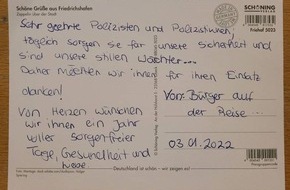 Schöne Grüße aus Friedrichshafen
Zeppelin über der Stadt
SCHÖNING
Friehaf 5023
Sehr geehrte Polizisten und Polizistinnen,
täglich sorgen sie für unsere Sicherheit und
sind unsere stillen Wächter...
Daher möchten wir ihnen für ihren Einsatz
danken!
Von Herzen wünschen
wir ihnen ein Jahr
voller sorgenfreier
Tage, Gesundheit und
Liebe.
Von: Bürger auf
der Reise...
03.01.2022
Deutschland ist schön - wir zeigen es!